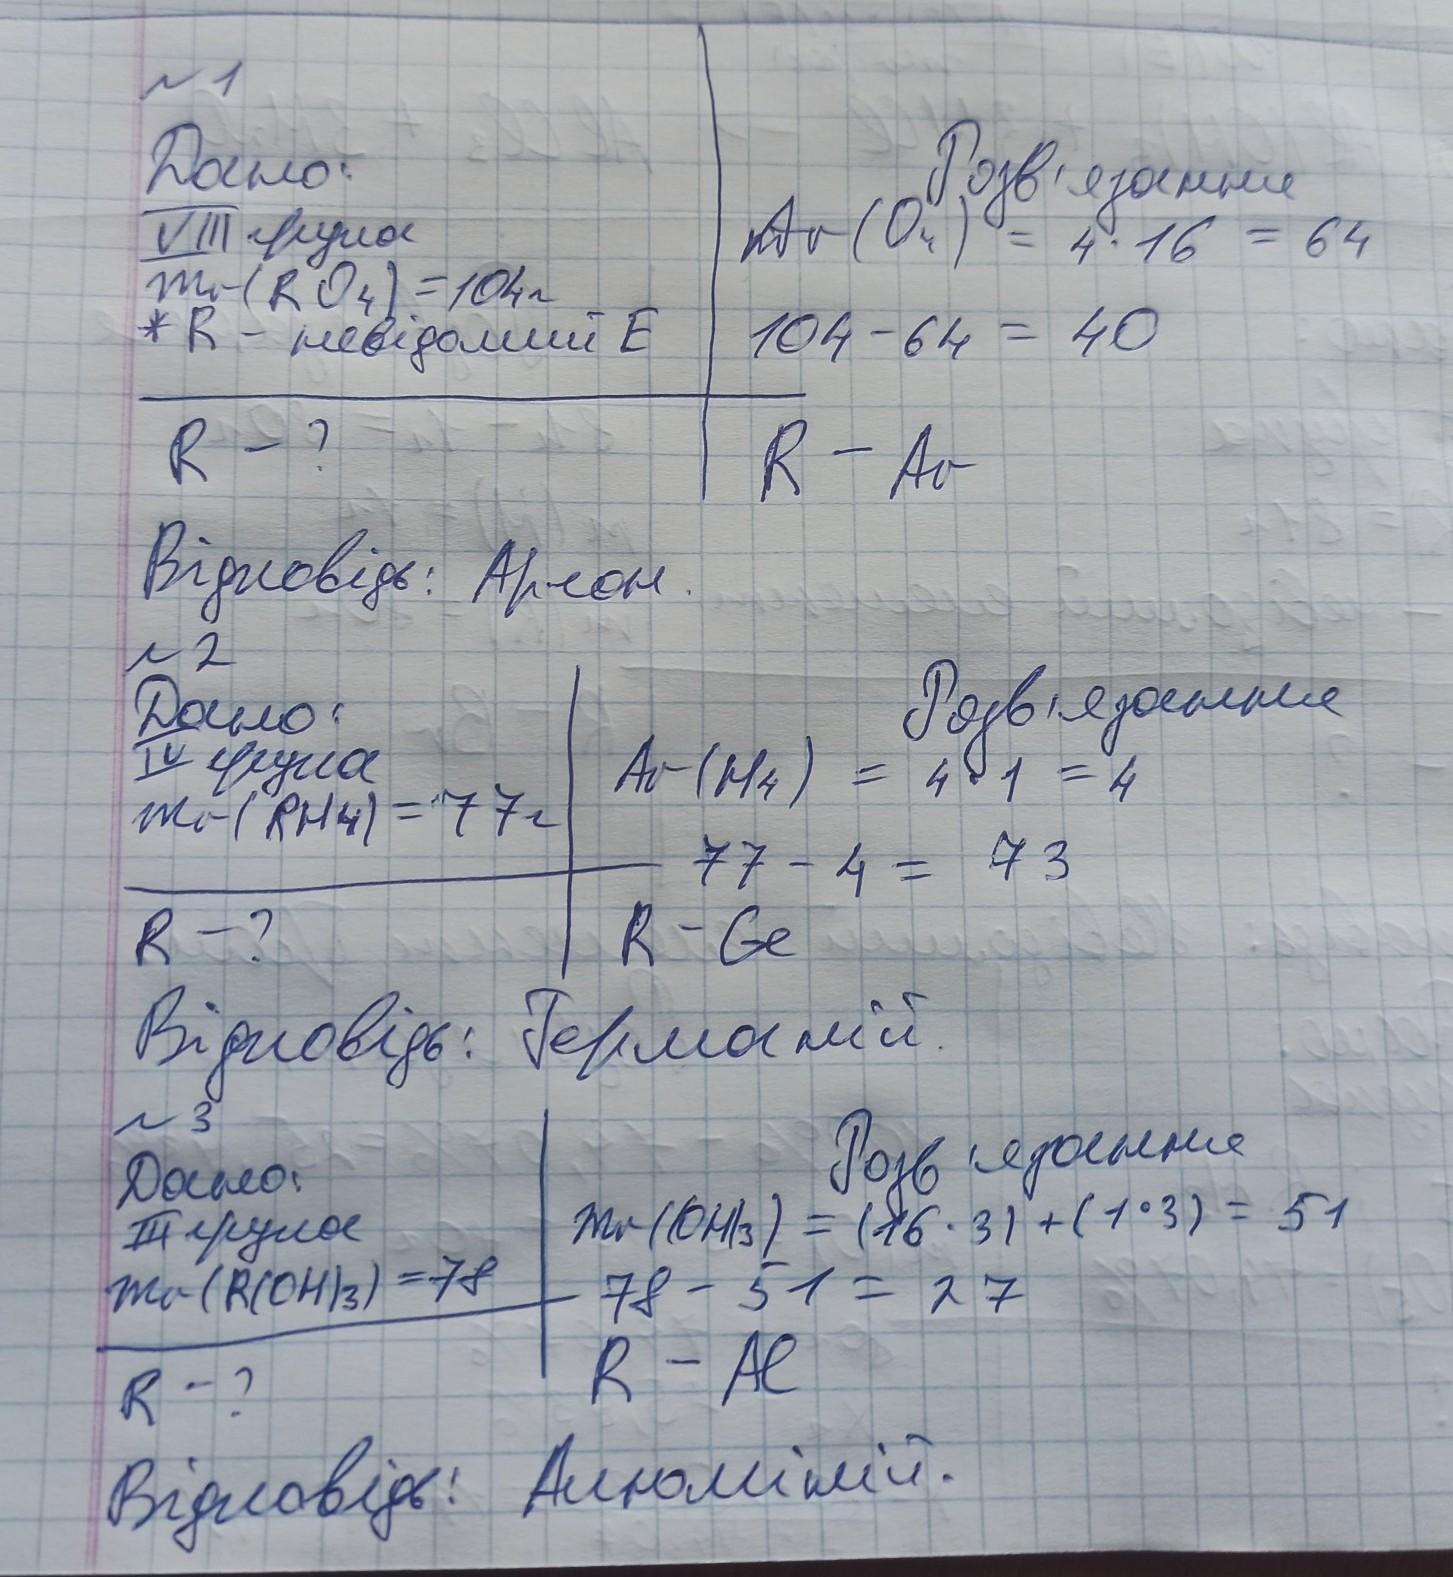 ~ 1
Дано:
VIII група
Mr(RO₄) = 104г
* R - невідомий E
R - ?
Розв'язання
Ar(O₄) = 4·16 = 64
104 - 64 = 40
R - Ar
Відповідь: Аргон.
~ 2
Дано:
IV група
Mr(RH4) = 77г
R - ?
Розв'язання
Ar(H₄) = 4·1 = 4
77 - 4 = 73
R - Ge
Відповідь: Германій.
~ 3
Дано:
III група
Mr(R(OH)₃) = 78
R - ?
Розв'язання
Mr((OH)₃) = (16·3) + (1·3) = 51
78 - 51 = 27
R - Al
Відповідь: Алюміній.